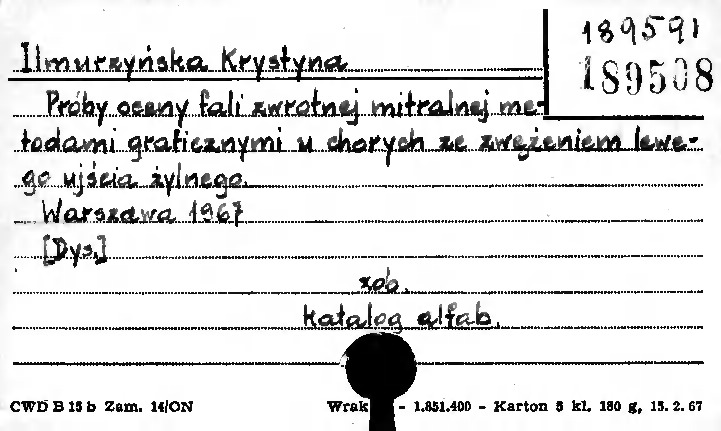 189591
Ilmurzyńska Krystyna
189508
Próby oceny fali zwrotnej mitralnej me-
todami graficznymi u chorych ze zwężeniem lewe-
go ujścia żylnego.
Warszawa 1967
[Dys.]
zob.
katalog alfab.
CWD B 15 b Zam. 14/ON Wrak - 1.851.400 - Karton 5 kl. 180 g, 15. 2. 67